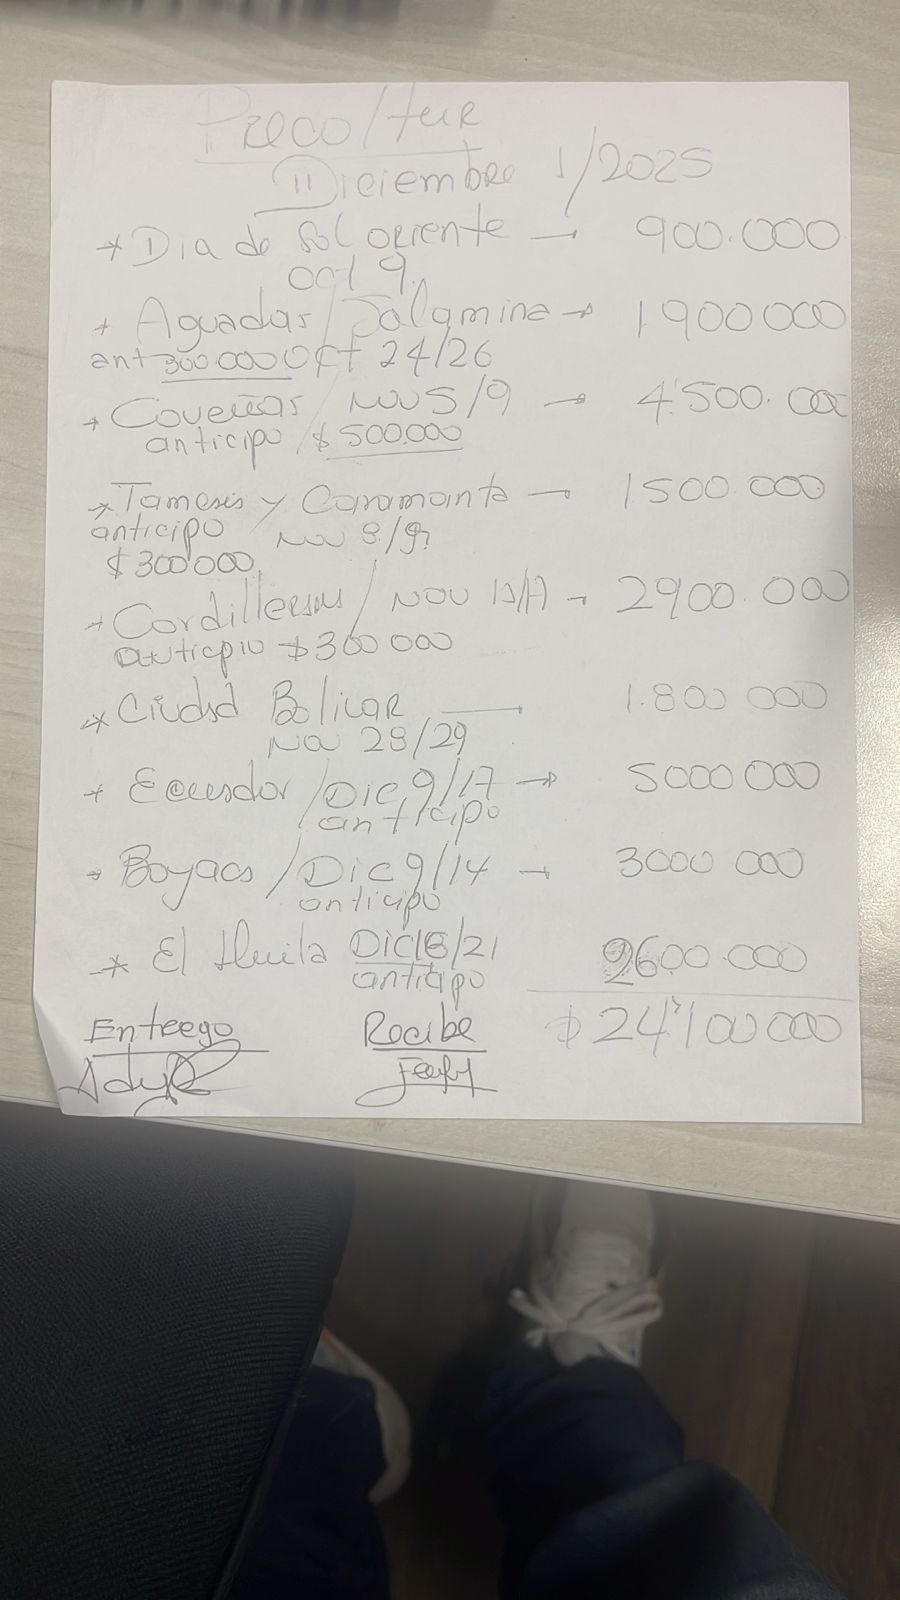 Precoltur
11 Diciembre 1/2025
* Dia de Sol oriente → 900.000
Oct 9.
* Aguadas/Salamina → 1900000
ant 300.000 Oct 24/26
* Coveñas / NOV 5/9 → 4'500.000
anticipo / $500.000
* Tamesis y Caramanta → 1.500.000
anticipo Nov 8/9
$300'000
* Cordilleras / NOV → 2900.000
anticipio $300 000
* Ciudad Bolivar → 1.800 000
Nov 28/29
* Ecuador / Dic 9/17 → 5000 000
anticipo
* Boyaca / Dic 9/14 → 3000 000
anticipo
* El Huila DIC 16/21 2600.000
anticipo
$ 24'100 000
Entrego Recibe